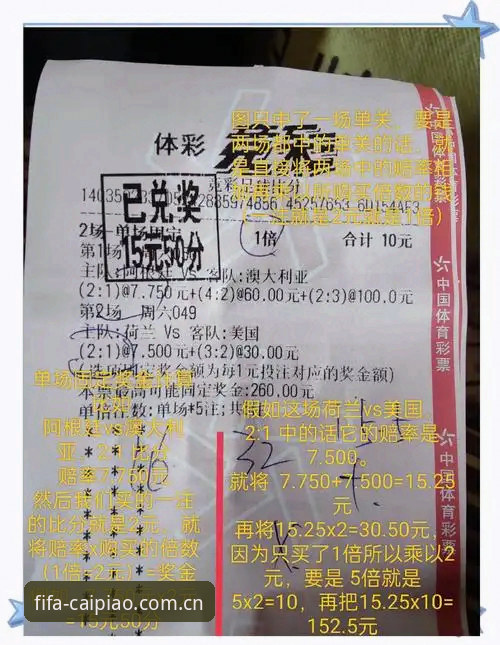 图只中了一场单关，要是
两场都中的单关的话，就
是直接将两场中的赔率相
（一注就是2元就是1倍）
体彩
竞彩足球比分
已兑奖
15元50分
2场-单场固定
1倍
合计 10元
第1场
主队:阿根廷 Vs 客队:澳大利亚
(2:1)@7.750元+(4:2)@60.00元+(2:3)@100.0元
第2场 周六049
主队:荷兰 Vs 客队:美国
(2:1)@7.500元+(3:2)@30.00元
(选项固定奖金额为每1元投注对应的奖金额)
本票最高可能固定奖金:260.00元
单倍注数:单场*5注;共
单场固定奖金计算
阿根廷vs澳大利
亚 2:1 比分
赔率7.750元
然后我们买的一注
的比分就是2元，就
将赔率x购买的倍数
（1倍=2元）=奖金
=15元50分
假如这场荷兰vs美国
2:1 中的话它的赔率是
7.500。
就将 7.750+7.500=15.25
元
再将15.25x2=30.50元，
因为只买了1倍所以乘以2
元，要是 5倍就是
5x2=10，再把15.25x10=
152.5元
中国体育彩票
中国体育彩票
中国体育彩票
fifa-caipiao.com.cn